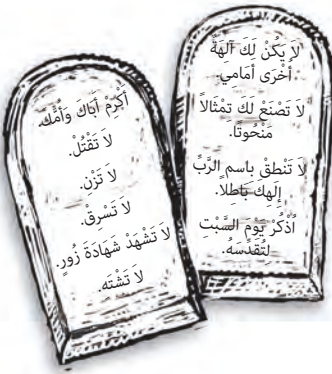 لَا يَكُنْ لَكَ آلِهَةٌ
أُخْرَى أَمَامِي.
لَا تَصْنَعْ لَكَ تِمْثَالاً
مَنْحُوتًا.
لَا تَنْطِقْ بِاسمِ الرَّبِّ
إِلَهِكَ بَاطِلاً.
اُذْكُرْ يَوْمَ السَّبْتِ
لِتُقَدِّسَهُ.
أَكْرِمْ أَبَاكَ وَأُمَّكَ.
لَا تَقْتُلْ.
لَا تَزْنِ.
لَا تَسْرِقْ.
لَا تَشْهَدْ شَهَادَةَ زُورٍ.
لَا تَشْتَهِ.